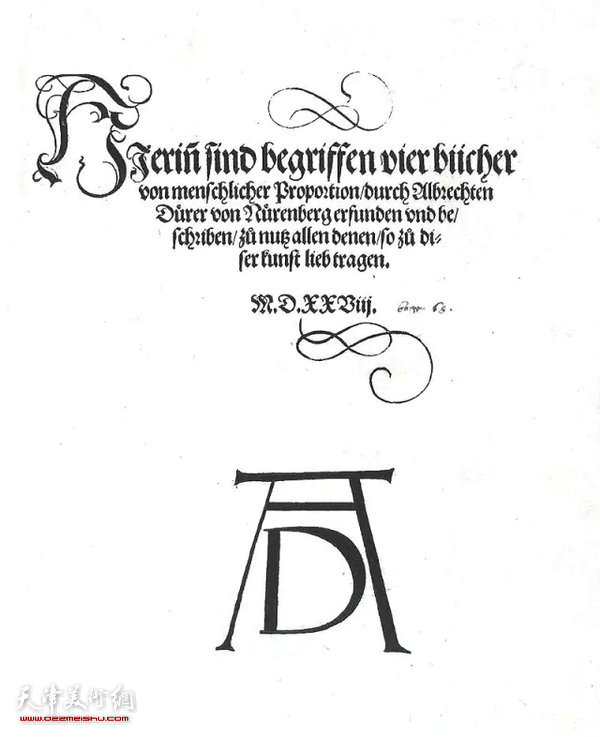 HIerin̄ sind begriffen vier bücher
von menschlicher Proportion/durch Albrechten
Dürer von Nürenberg erfunden vnd be/
schriben/zů nutz allen denen/so zů di-
ser kunst lieb tragen.
M.D.XXViij.
AD
天津美术網
www.022meishu.com